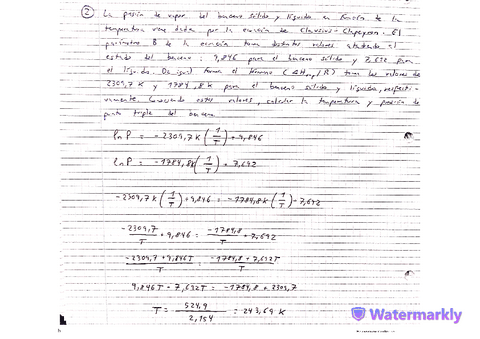 ② La presión de vapor del benceno sólido y líquido en función de la
temperatura viene dada por la ecuación de Clausius-Clapeyron. El
parámetro B de la ecuación toma distintos valores atendiendo al
estado del benceno: 9,846 para el benceno sólido y 7,692 para
el líquido. De igual forma el término (ΔHm/R) toma los valores de
2309,7 K y 1784,8 K para el benceno sólido y líquido, respecti-
vamente. Conociendo estos valores, calcular la temperatura y presión de
punto triple del benceno
ln P = -2309,7K (1/T) + 9,846
ln P = -1784,8K (1/T) + 7,692
-2309,7K (1/T) + 9,846 = -1784,8K (1/T) - 7,692
-2309,7/T + 9,846 = -1784,8/T + 7,692
-2309,7 + 9,846T/T = -1784,8 + 7,692T/T
9,846T - 7,692T = -1784,8 + 2309,7
T = 524,9/2,154 = 243,69 K
Watermarkly